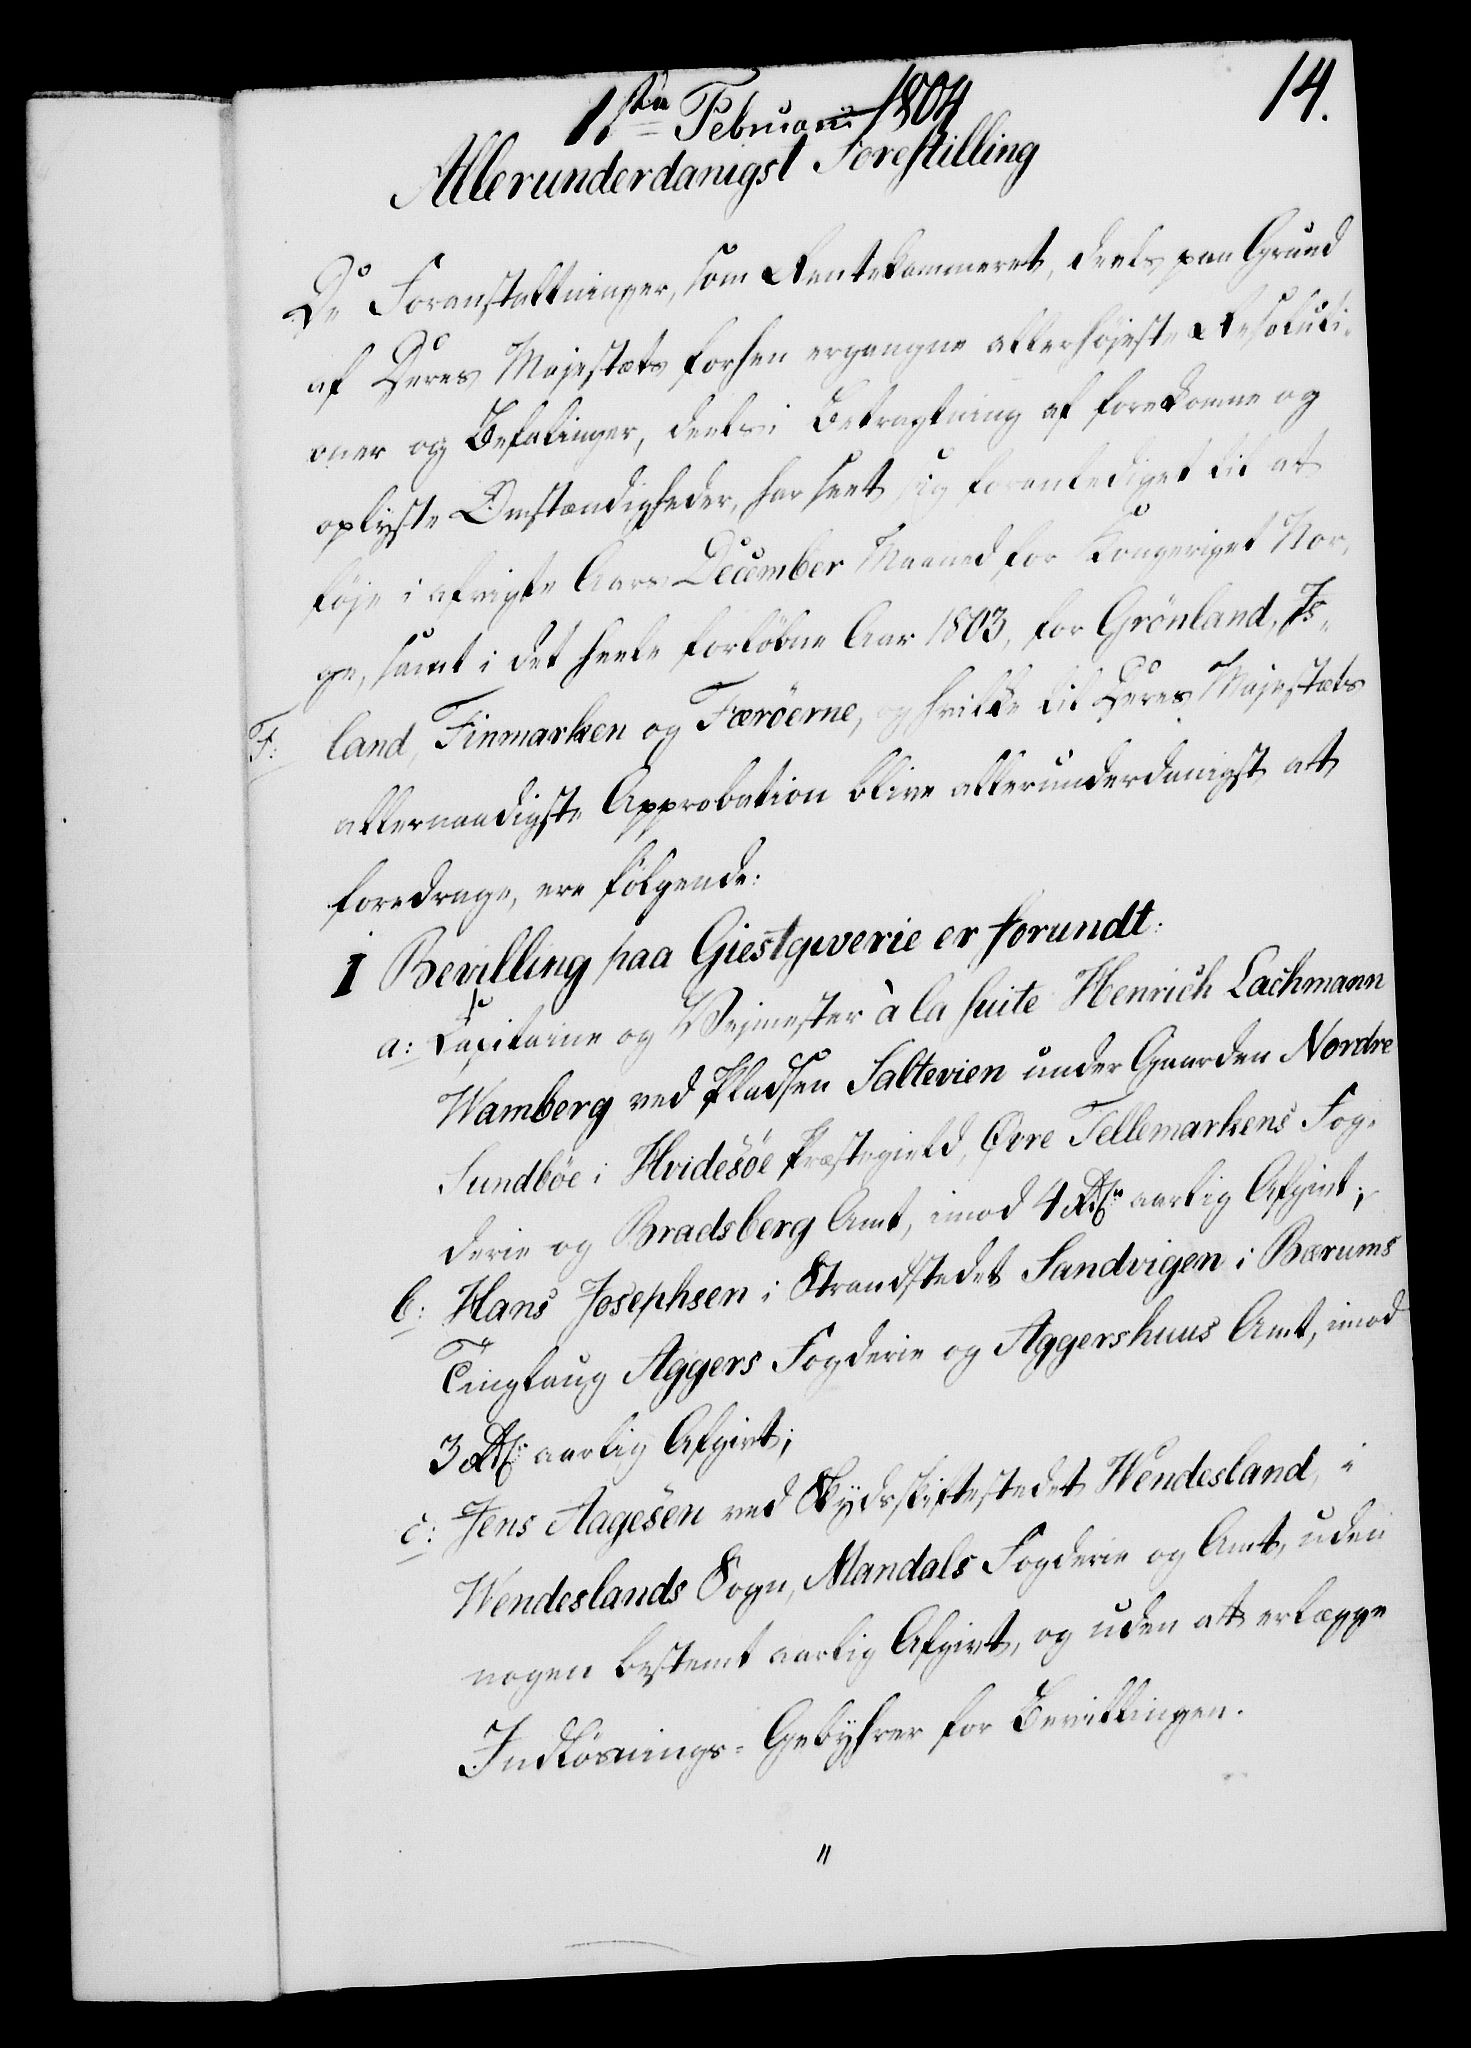 14.
1ste Februarii 1804
Allerunderdanigst Forestilling
De Foranstaltninger, som Rentekammeret, deels paa Grund
af Deres Majestæts forhen ergangne allerhøjeste Resoluti-
oner og Befalinger, deels i Betragtning af forekomne og
oplyste Omstændigheder, har seet sig foranlediget til at
føje i afvigte Aars December Maaned for Kongeriget Nor-
ge, samt i det heele forløbne Aar 1803, for Grönland, Is-
F: land, Finmarken og Færöerne, og hvilke til Deres Majestæts
allernaadigste Approbation blive allerunderdanigst att
foredrage, ere følgende:
I Bevilling paa Giestgiverie er forundt:
a: Capitaine og Vejmester à la suite Henrich Lachmann
Wamberg ved Pladsen Saltevien under Gaarden Nordre
Sundböe i Hvidesöe Præstegield, Øvre Tellemarkens Fog-
derie og Bradsberg Amt, imod 4 Rdr aarlig Afgivt;
b: Hans Josephsen i Strandstedet Sandvigen i Bærums
Tinglaug Aggers Fogderie og Aggershuus Amt, imod
3 Rdr aarlig Afgivt;
c: Jens Aagesen ved Skydsskiftestedet Wendesland, i
Wendeslands Sogn, Mandals Fogderie og Amt, uden
nogen bestemt aarlig Afgivt, og uden att erlægge
Indløsnings-Gebyhrer for Bevillingen.
"